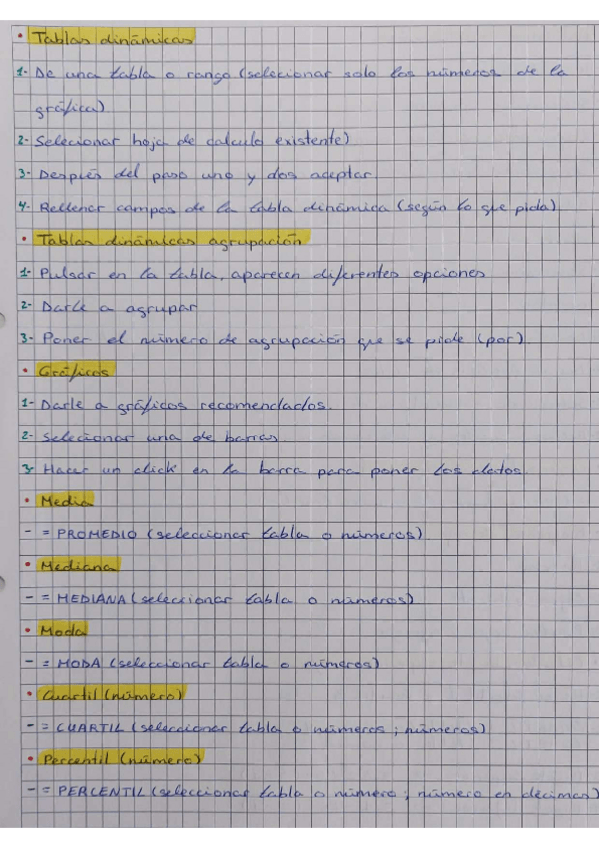 • Tablas dinámicas
1- De una tabla o rango (selecionar solo los números de la
gráfica)
2- Selecionar hoja de calculo existente)
3- Después del paso uno y dos aceptar
4- Rellenar campos de la tabla dinámica (según lo que pida)
• Tablas dinámicas agrupación
1- Pulsar en la tabla, aparecen diferentes opciones
2- Darle a agrupar
3- Poner el número de agrupación que se pide (por)
• Gráficos
1- Darle a gráficos recomendados.
2- Selecionar una de barras
3- Hacer un click en la barra para poner los datos
• Media
- = PROMEDIO (seleccionar tabla o números)
• Mediana
- = MEDIANA (seleccionar tabla o números)
• Moda
- = MODA (seleccionar tabla o números)
• Cuartil (número)
- = CUARTIL (seleccionar tabla o números ; números)
• Percentil (número)
- = PERCENTIL (seleccionar tabla o número ; número en décimas)